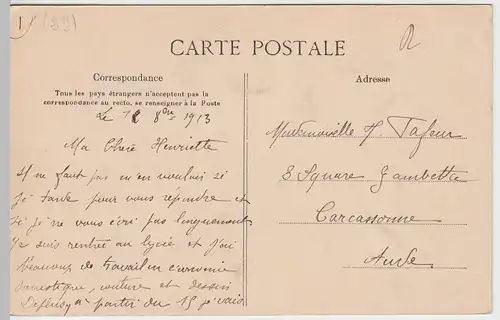 1 (89)
CARTE POSTALE
Correspondance
Tous les pays étrangers n'acceptent pas la
correspondance au recto, se renseigner à la Poste
Le 8bre 1913
Ma Chère Henriette
Il ne faut pas m'en vouloir si
je tarde pour vous répondre et
si je ne vous écri pas longuement
Je suis rentrée au lycée et j'ai
beaucoup de travail en économie
domestique, couture et dessin
à partir du 15 je vais
Adresse
Mademoiselle H.
8 Square Gambetta
Carcassonne
Aude